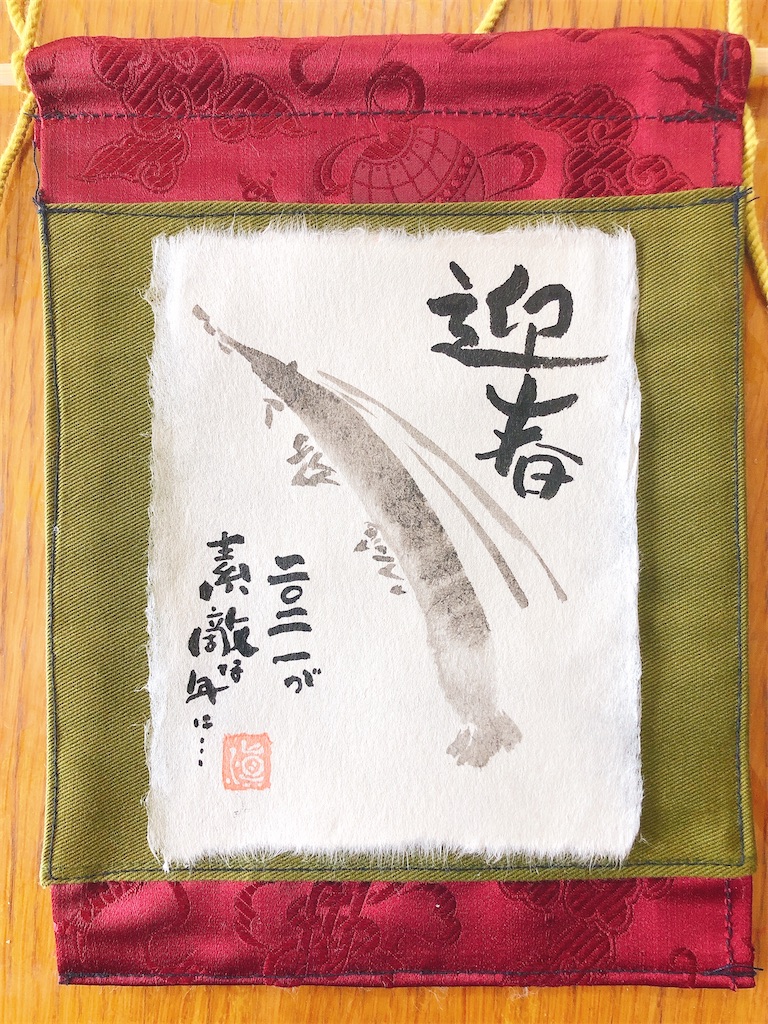 迎春
二〇二一が
素敵な
年に…